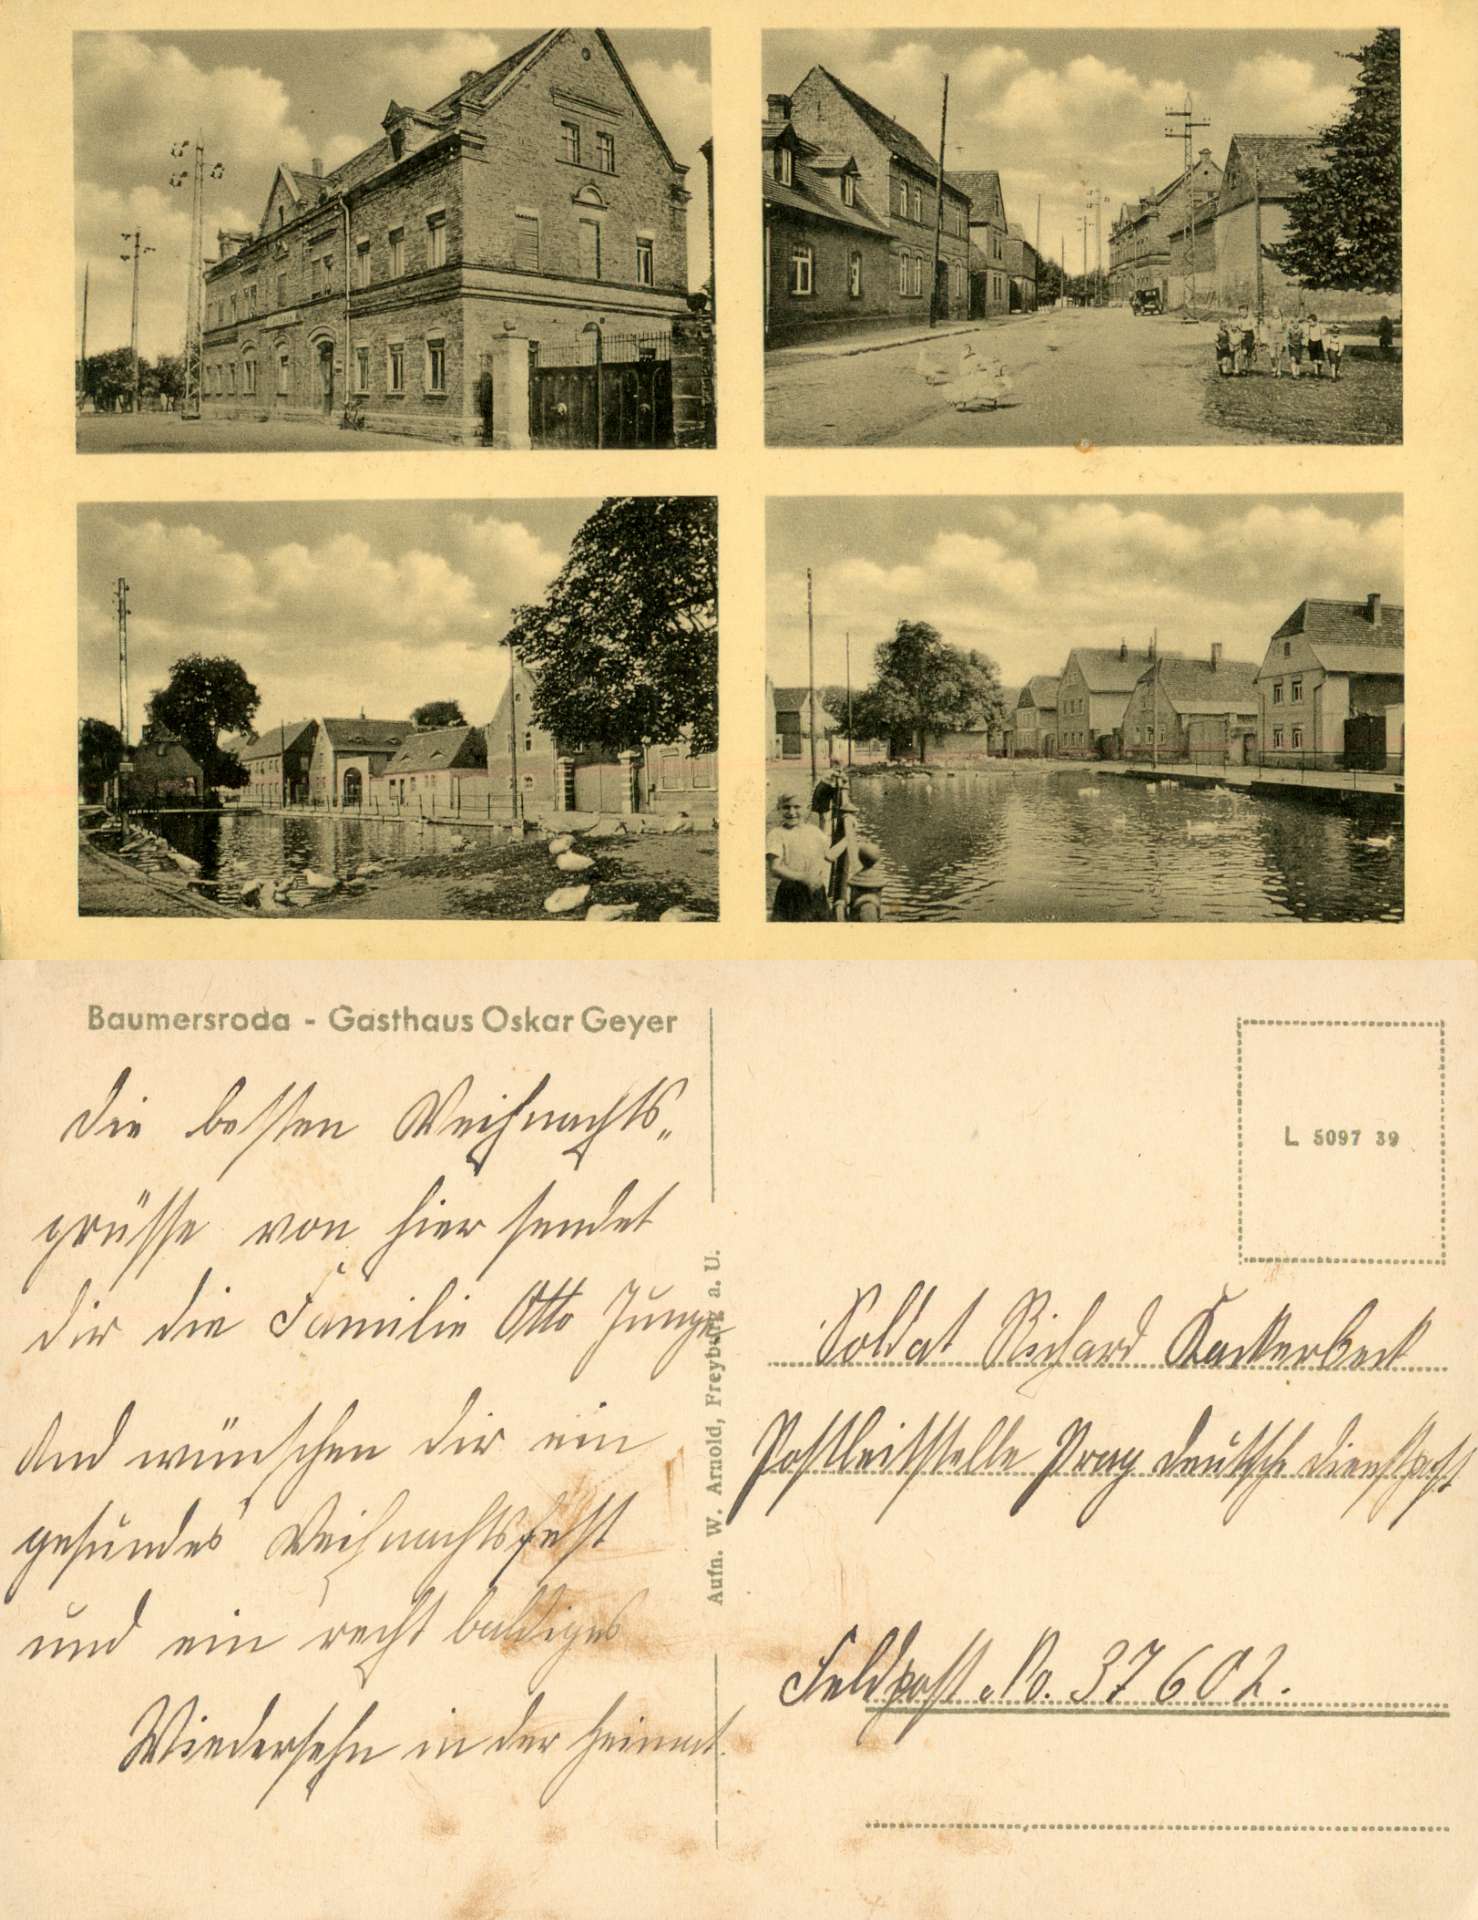 Baumersroda - Gasthaus Oskar Geyer
die besten Weihnachts„
grüsse von hier sendet
dir die Familie Otto Junge
And wünschen dir ein
gesundes Weihnachtsfest
und ein recht baldiges
Wiedersehn in der Heimat.
Aufn. W. Arnold, Freyburg a. U.
L 5097 39
Soldat Richard
Postleitstelle Prag deutsche dienstpost
Feldpost No. 37602.